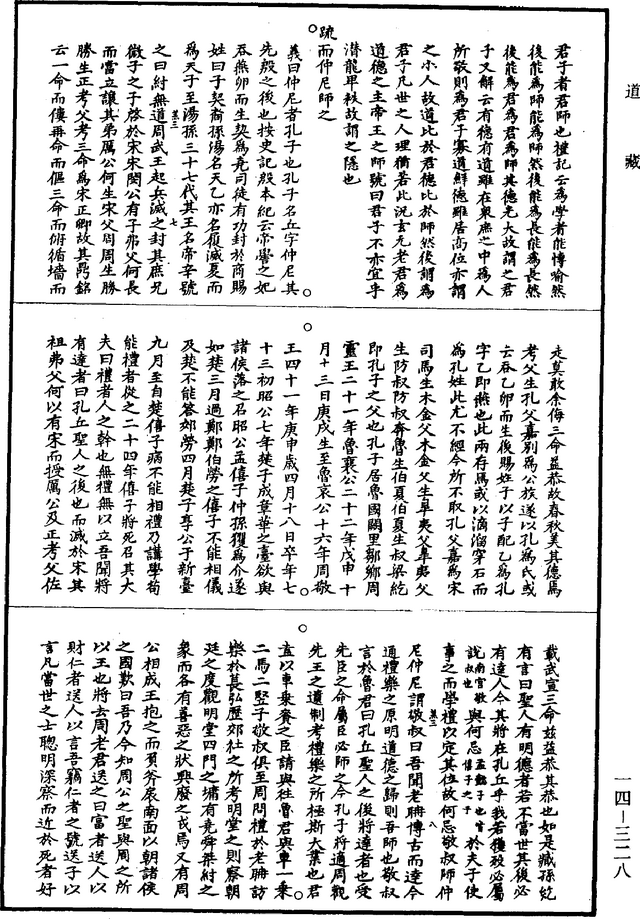 道藏
君子者君師也禮記云為學者能博喻然
後能為師能為師然後能為長能為長然
後能為君為君為師其德光大故謂之君
子又解云有德有道雖在衆庶之中為人
所敬則為君子寡道鮮德雖居高位亦謂
之小人故道比於君德比於師然後謂為
君子凡世之人理猶若此況玄元老君為
道德之主帝王之師號曰君子不亦宜乎
潛龍卑秩故謂之隱也
而仲尼師之
疏
義曰仲尼者孔子也孔子名丘字仲尼其
先殷之後也按史記殷本紀云帝嚳之妃
吞燕卵而生契為堯司徒有功封於商賜
姓曰子契裔孫湯名天乙亦名履滅夏而
為天子至湯孫三十七代其王名帝辛號
之曰紂無道周武王起兵滅之封其庶兄
微子之子啓於宋宋閔公有子弗父何長
而當立讓其弟厲公何生宋父周周生勝
勝生正考父考三命為宋正卿故其鼎銘
云一命而僂再命而傴三命而俯循墻而
走莫敢余侮三命益恭故春秋美其德焉
考父生孔父嘉別為公族遂以孔為氏或
云吞乙卵而生後賜姓子以子配乙為孔
字乙即燕也此兩存焉或以滴溜穿石而
為孔姓此尤不經今所不取孔父嘉為宋
司馬生木金父木金父生睾夷父睾夷父
生防叔防叔奔魯生伯夏伯夏生叔梁紇
即孔子之父也孔子居魯國闕里鄒鄉周
靈王二十一年魯襄公二十二年戊申十
月十三日庚戌生至魯哀公十六年周敬
王四十一年庚申歲四月十八日卒年七
十三初昭公七年楚子成章華之臺欲與
諸侯落之召昭公孟僖子仲孫玃為介遂
如楚三月過鄭鄭伯勞之僖子不能相儀
及楚不能答郊勞四月楚子享公于新臺
九月至自楚僖子病不能相禮乃講學苟
能禮者從之二十四年僖子將死召其大
夫曰禮者人之幹也無禮無以立吾聞將
有達者曰孔丘聖人之後也而滅於宋其
祖弗父何以有宋而授厲公及正考父佐
戴武宣三命茲益恭其恭也如是臧孫紇
有言曰聖人有明德者若不當世其後必
有達人今其將在孔丘乎我若獲殁必屬
說南宮敬叔也與何忌孟懿子也皆僖子之子於夫子使
事之而學禮以定其位故何忌敬叔師仲
尼仲尼謂敬叔曰吾聞老聃博古而達今
通禮樂之原明道德之歸則吾師也敬叔
言於魯君曰孔丘聖人之後將達者也受
先臣之命屬臣必師之今孔子將適周觀
先王之遺制考禮樂之所極斯大業也君
盍以車乘資之臣請與往魯君與車一乘
二馬二豎子敬叔俱至周問禮於老聃訪
樂於萇弘歷郊社之所考明堂之則察朝
廷之度觀明堂四門之墉有堯舜桀紂之
象而各有善惡之狀興廢之戒焉又有周
公相成王抱之而負斧扆南面以朝諸侯
之國歎曰吾乃今知周公之聖與周之所
以王也將去周老君送之曰富者送人以
財仁者送人以言吾竊仁者之號送子以
言凡當世之士聰明深察而近於死者好
一四—三二八